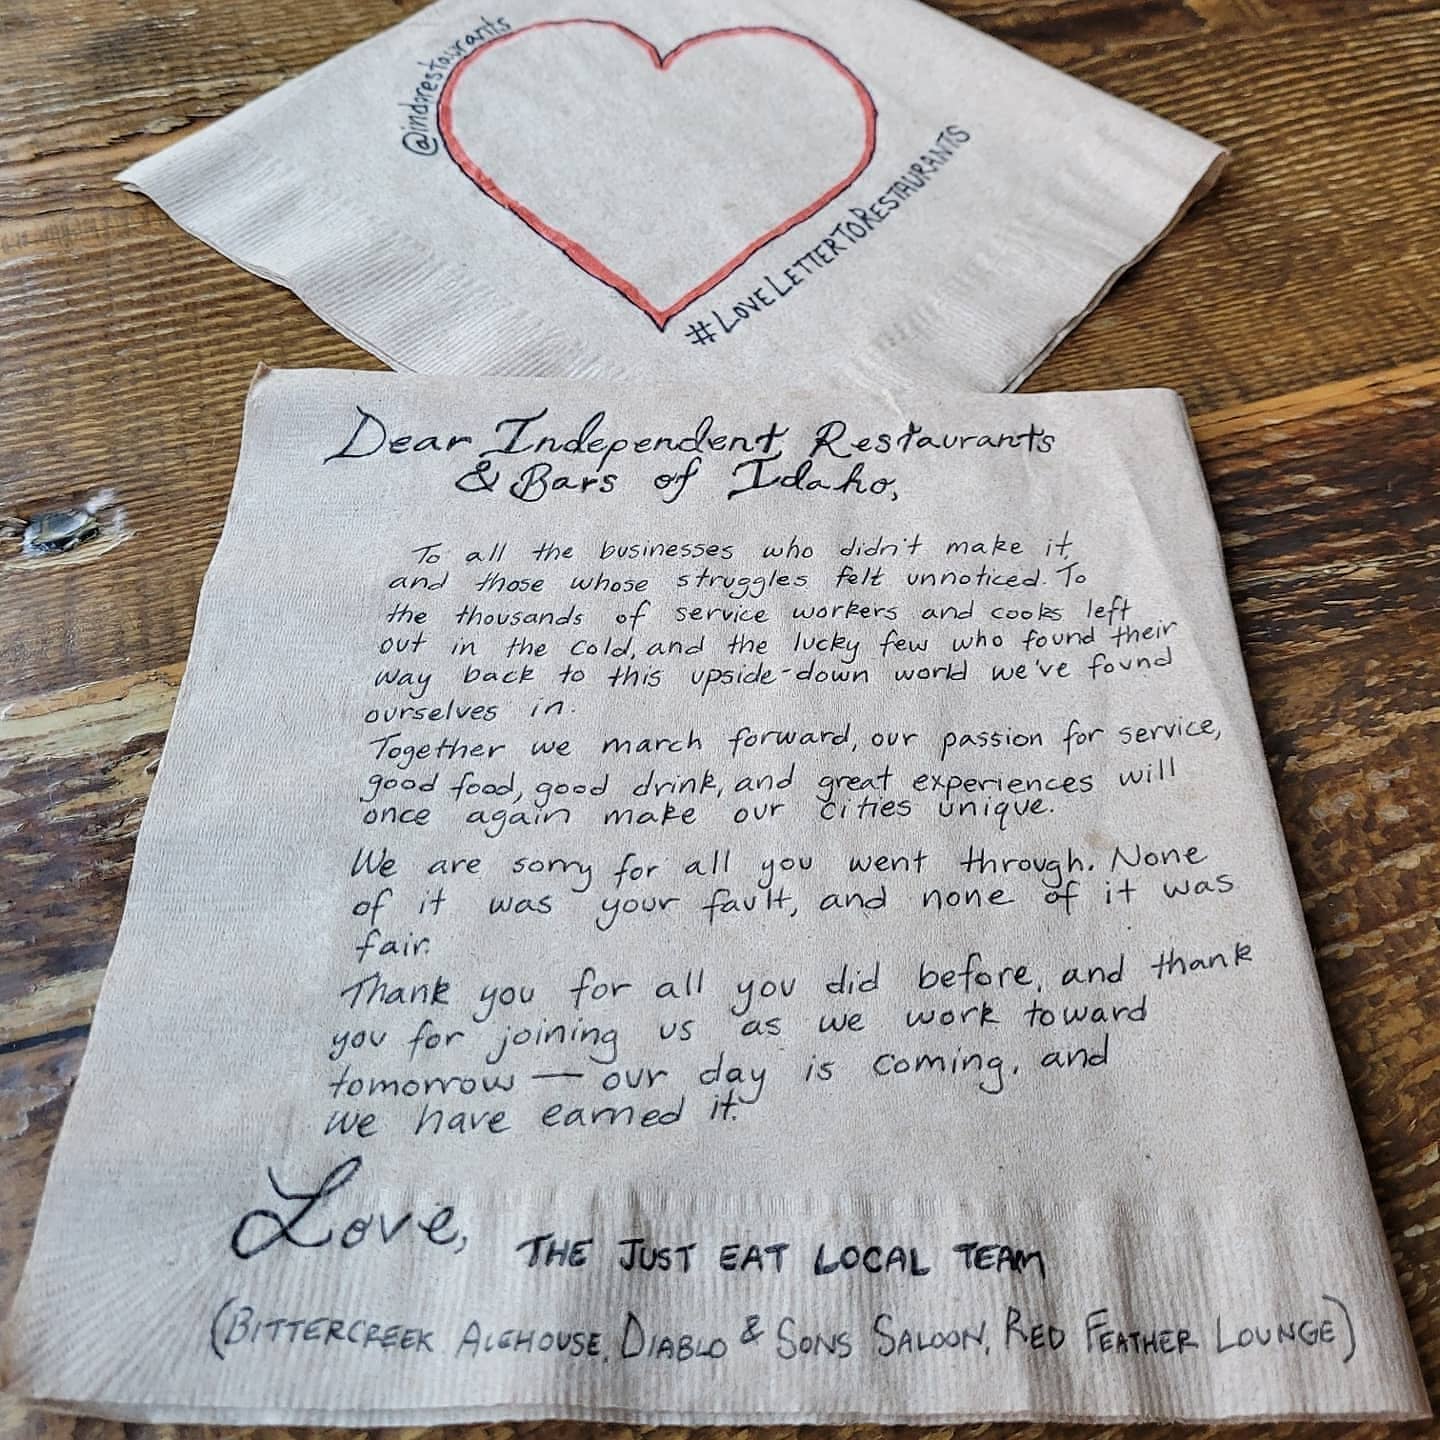 @indxrestaurants
#LOVELETTERTORESTAURANTS
Dear Independent Restaurants
& Bars of Idaho,
To all the businesses who didn't make it,
and those whose struggles felt unnoticed. To
the thousands of service workers and cooks left
out in the cold, and the lucky few who found their
way back to this upside-down world we've found
ourselves in.
Together we march forward, our passion for service,
good food, good drink, and great experiences will
once again make our cities unique.
We are sorry for all you went through. None
of it was your fault, and none of it was
fair.
Thank you for all you did before, and thank
you for joining us as we work toward
tomorrow — our day is coming, and
we have earned it.
Love, THE JUST EAT LOCAL TEAM
(BITTERCREEK ALEHOUSE, DIABLO & SONS SALOON, RED FEATHER LOUNGE)